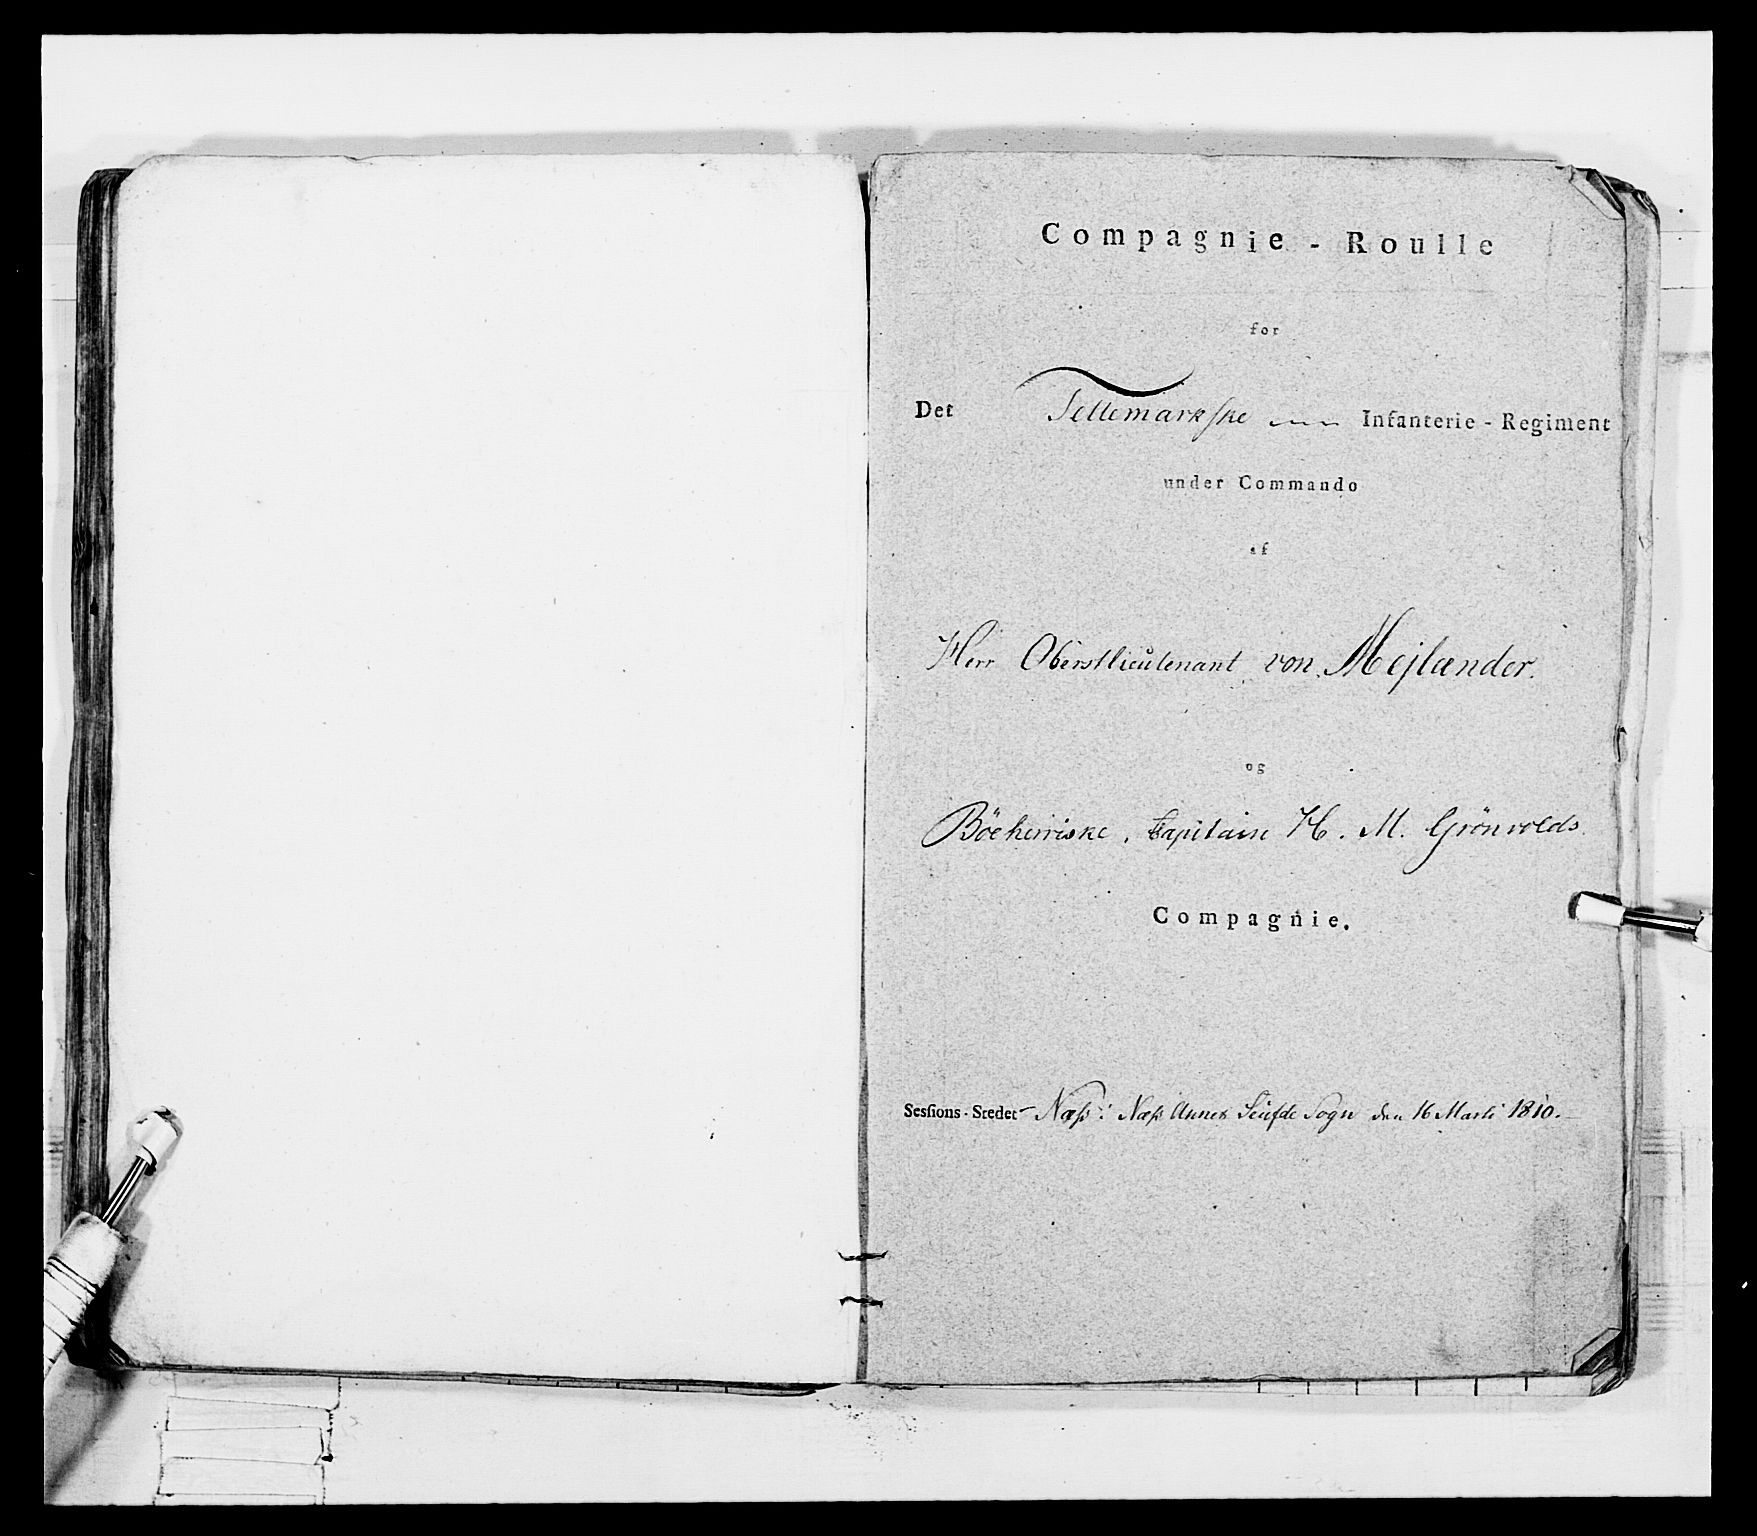 Compagnie - Roulle
for
Det Tellemarkske Infanterie - Regiment
under Commando
af
Herr Oberstlieutenant von Mejlænder.
og
Böeherriske, Capitain H. M. Grönvolds
Compagnie.
Sessions-Stedet - Næss i Næss Annex Sogn den 16 Marti 1810.